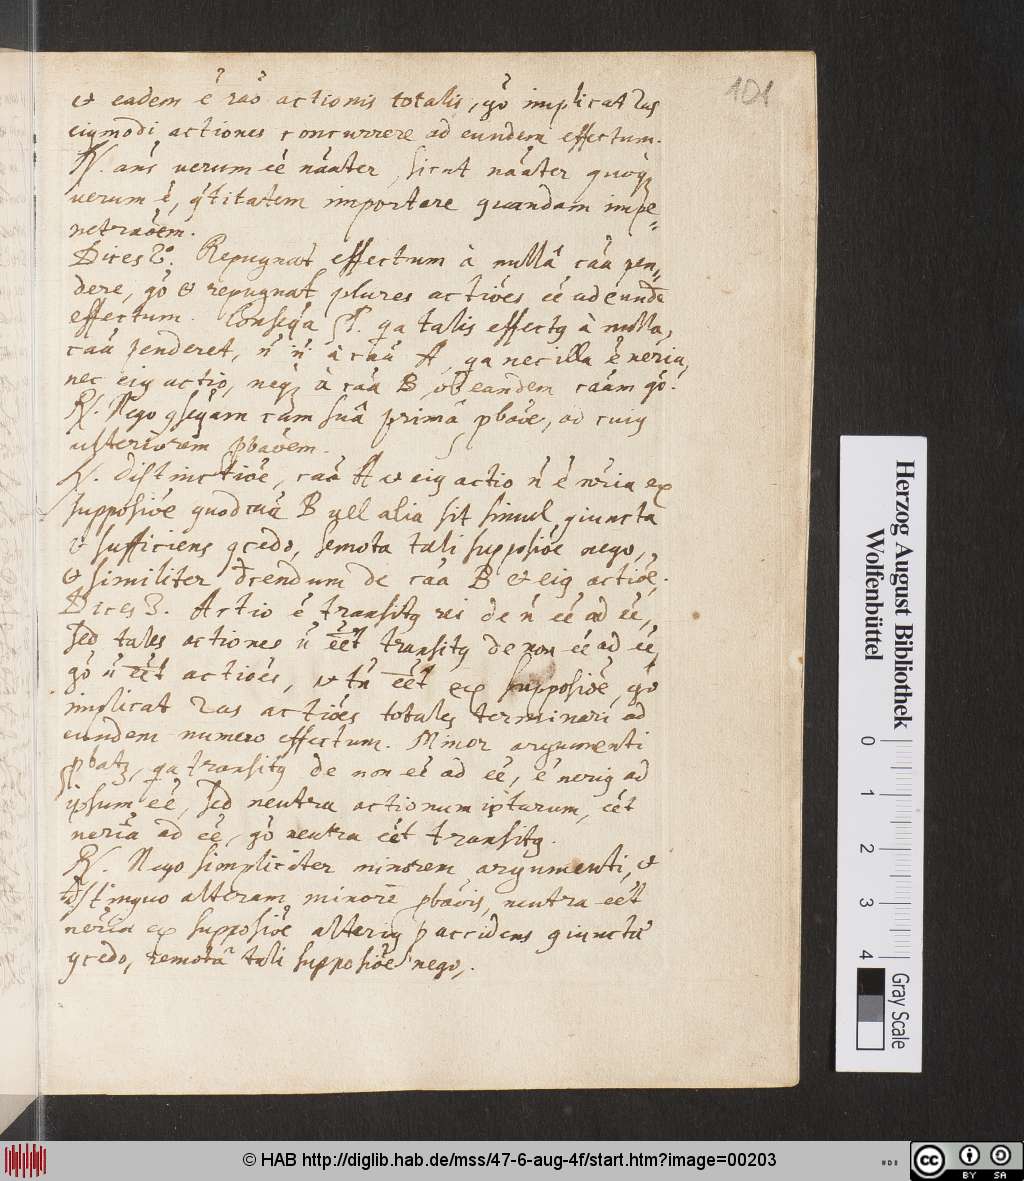 101
et eadem ē raō actionis totalis, gō implicat 2as
eiusmodi actiones concurrere ad eundem effectum.
R. ans verum eé náater, sicut náater quoq;
verum é, qtitatem importare quandam impe=
netraōem.
Dices 2º. Repugnat effectum à nullâ caâ pen=
dere, gō et repugnat plures actiões eé ad eunde
effectum. Conseqa qa talis effectq à nulla,
caâ penderet, ñ ñ à caâ A, qa nec illa é neria,
nec eiq actio, neq; à caâ B ob eandem caâm gō.
R. Nego qseqam cum suâ primâ pbaōe, ad cuiq
ulteriorem pbaōem.
R. distinctiōe, caâ A et eiq actio ñ é nria ex
supposiōe quod caâ B vell alia sit simul qiuncta
et sufficiens qcedo, semota tali supposiōe nego,
et similiter dcendum de caâ B et eiq actiōe.
Dices 3. Actio é transitq rei de ñ eé ad eé,
sed tales actiones ñ eét transitq de non eé ad eé
gō ñ eét actiões, et tñ eét ex supposiōe, gō
implicat 2as actiões totales terminari ad
eundem numero effectum. Minor argumenti
pbatq, qa transitq de non eé ad eé, é neriq ad
ipsum eé, sed neutra actionum istarum, eét
neria ad eé, gō neutra eét transitq.
R. Nego simpliciter minorem argumenti, et
distinguo alteram minorē pbaōis, neutra eét
neria ex supposiōe alteriq p accidens qiunctâ
qcedo, remotâ tali supposiōe nego,.
Herzog August Bibliothek
Wolfenbüttel
0 1 2 3 4
Gray Scale
© HAB http://diglib.hab.de/mss/47-6-aug-4f/start.htm?image=00203
cc BY SA